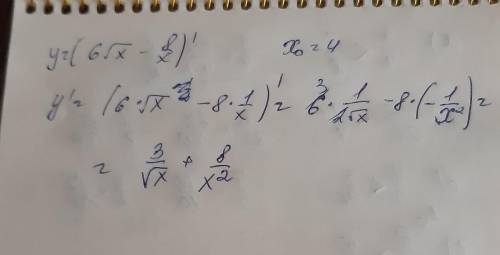 y=(6√x − 8/x)' x₀ = 4
y' = (6·√x − 8·1/x)' = 6·1/2√x − 8·(−1/x²) =
= 3/√x + 8/x²